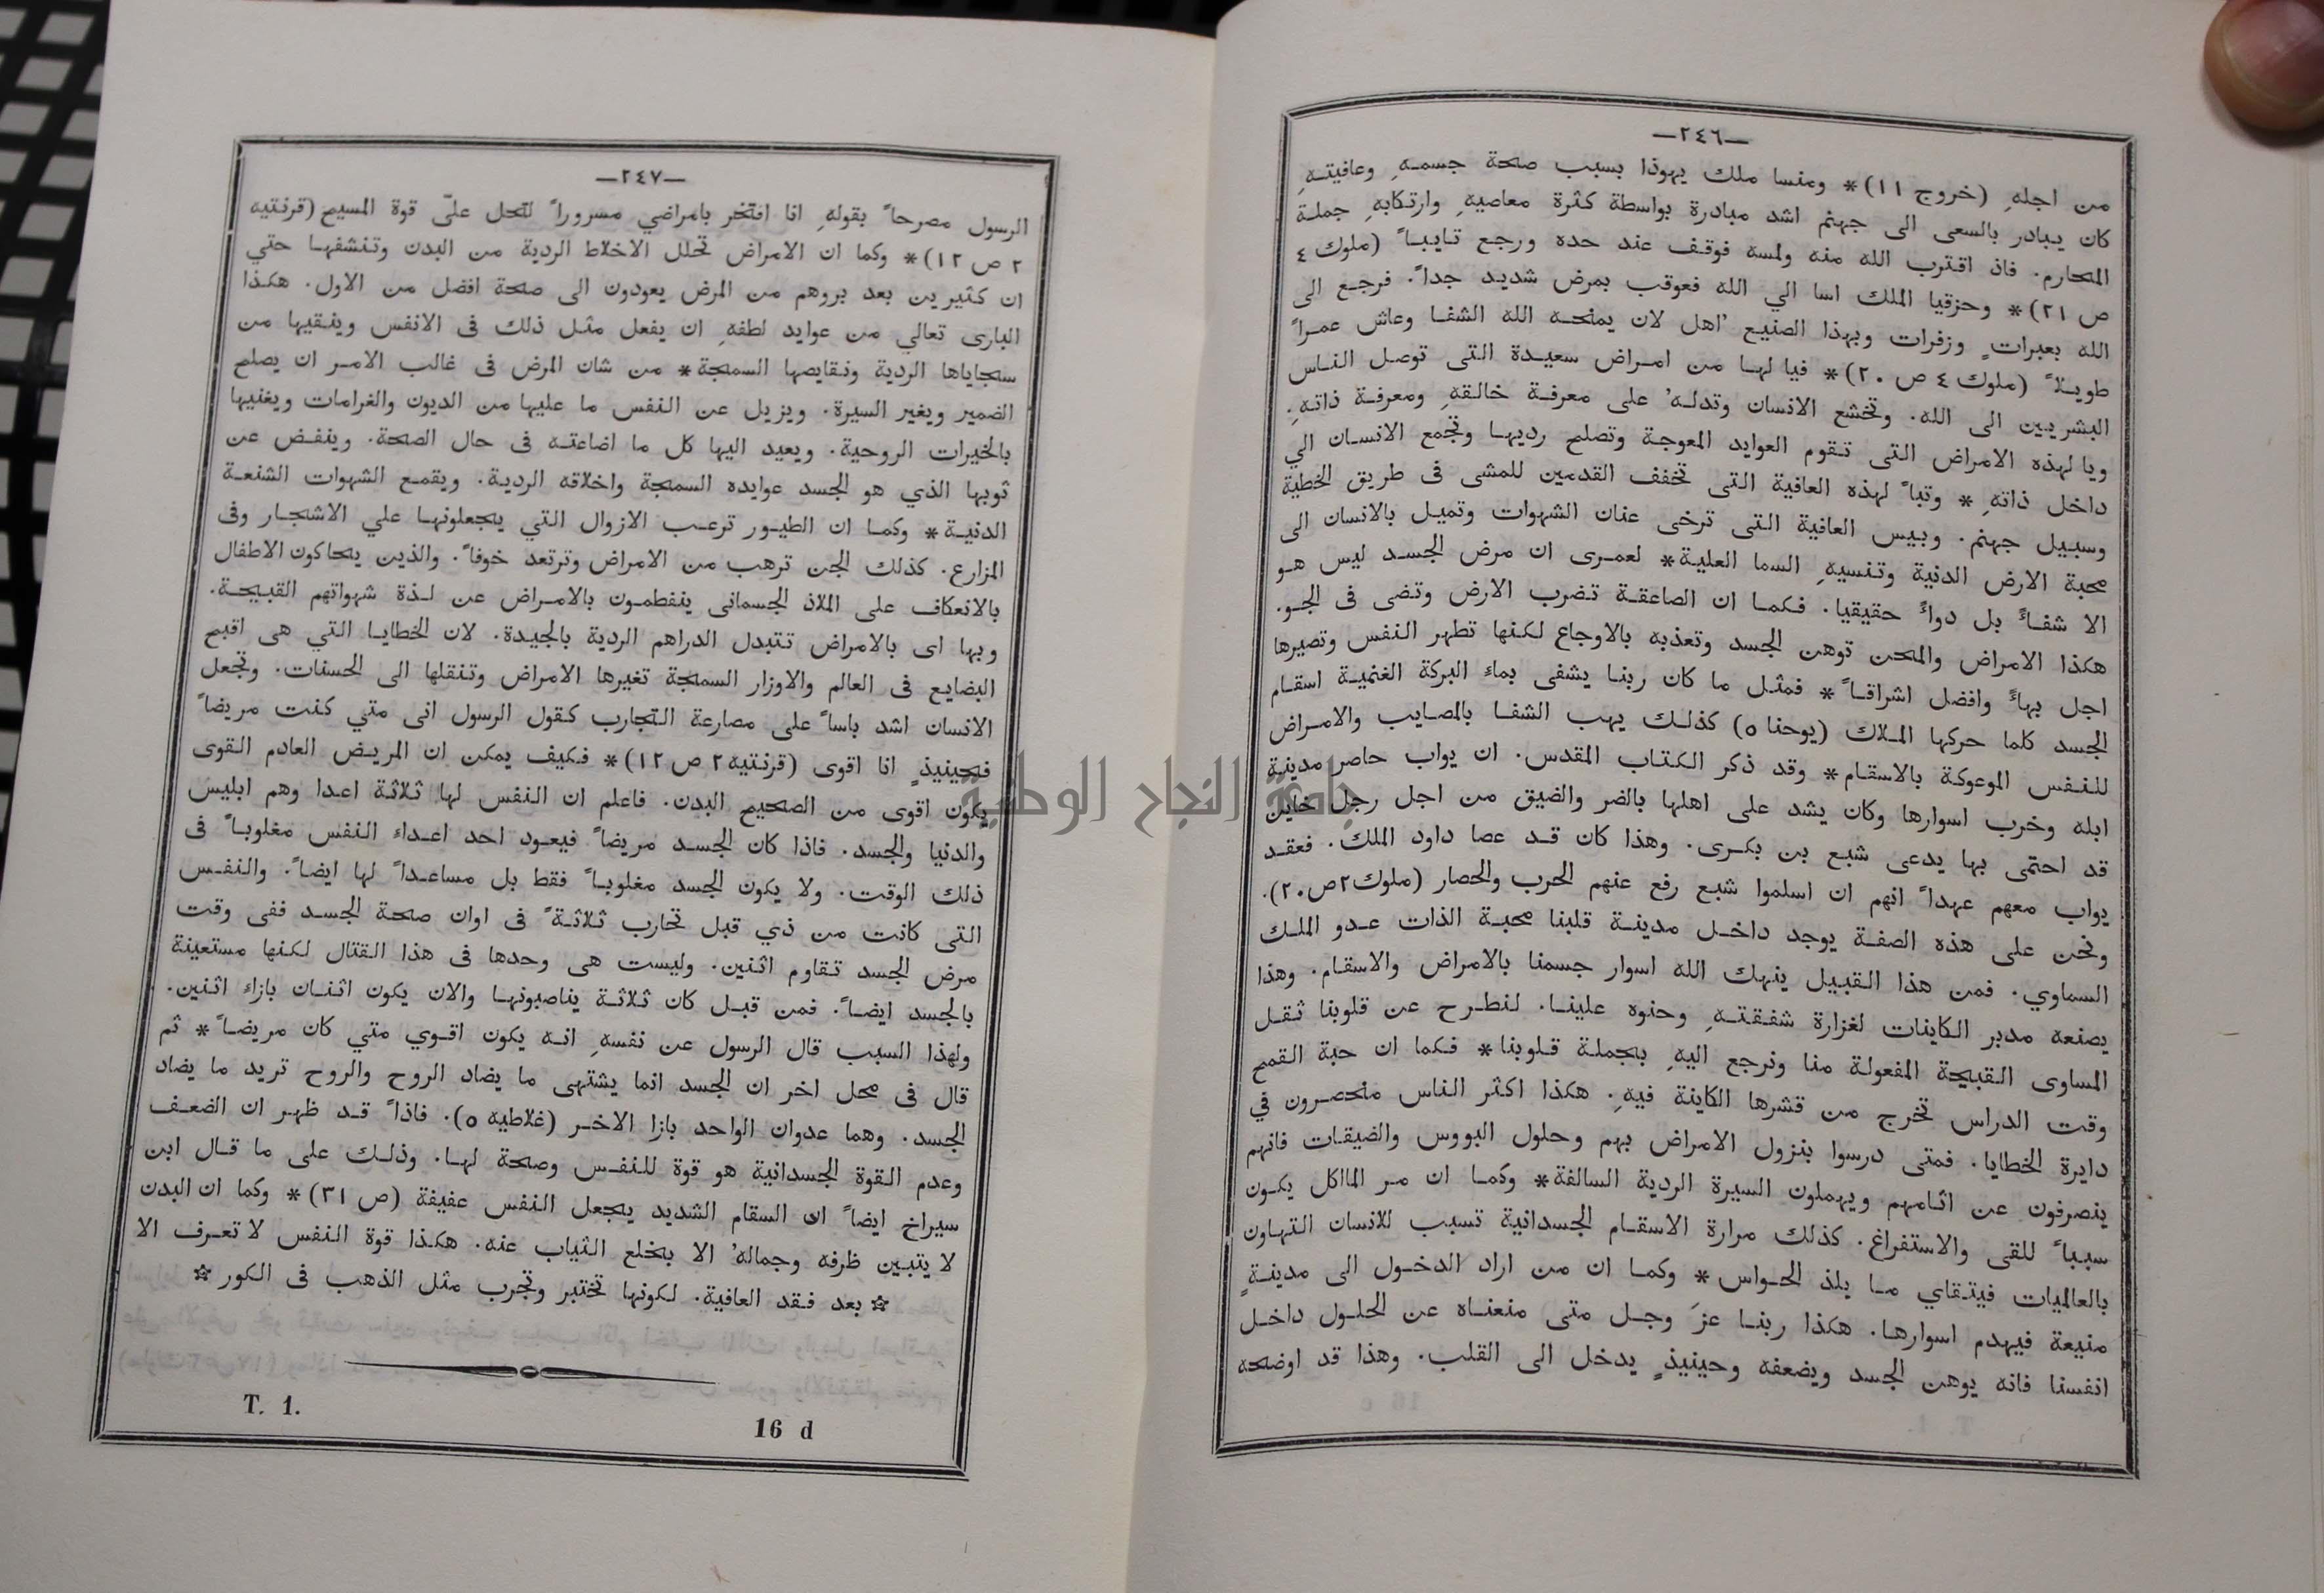 —٢٤٦—
من اجلهِ (خروج ١١)* ومنسا ملك يهوذا بسبب صحة جسمهِ وعافيتهِ
كان يبادر بالسعى الى جهنم اشد مبادرة بواسطة كثرة معاصيهِ وارتكابهِ جملة
المحارم. فاذ اقترب الله منه ولمسه فوقف عند حده ورجع تايباً (ملوك ٤
ص ٢١)* وحزقيا الملك اسا الي الله فعوقب بمرض شديد جداً. فرجع الى
الله بعبراتٍ وزفرات وبهذا الصنيع اُهل لان يمنحه الله الشفا وعاش عمراً
طويلاً (ملوك ٤ ص ٢٠)* فيا لها من امراض سعيدة التى توصل الناس
البشريين الى الله. وتخشع الانسان وتدلهُ على معرفة خالقهِ ومعرفة ذاتهِ.
ويا لهذه الامراض التى تقوم العوايد المعوجة وتصلح رديها وتجمع الانسان الي
داخل ذاتهِ * وتباً لهذه العافية التى تخفف القدمين للمشى فى طريق الخطية
وسبيل جهنم. وبيس العافية التى ترخى عنان الشهوات وتميل بالانسان الى
محبة الارض الدنية وتنسيهِ السما العلية* لعمرى ان مرض الجسد ليس هو
الا شفاءً بل دواءً حقيقيا. فكما ان الصاعقة تضرب الارض وتضى فى الجو.
هكذا الامراض والمحن توهن الجسد وتعذبه بالاوجاع لكنها تطهر النفس وتصيرها
اجل بهاءً وافضل اشراقاً* فمثل ما كان ربنا يشفى بماء البركة الغنمية اسقام
الجسد كلما حركها الملاك (يوحنا ٥) كذلك يهب الشفا بالمصايب والامراض
للنفس الموعوكة بالاسقام* وقد ذكر الكتاب المقدس. ان يواب حاصر مدينة
ابله وخرب اسوارها وكان يشد على اهلها بالضر والضيق من اجل رجل خاين
قد احتمى بها يدعى شبع بن بكرى. وهذا كان قد عصا داود الملك. فعقد
يواب معهم عهداً انهم ان اسلموا شبع رفع عنهم الحرب والحصار (ملوك٢ص٢٠).
ونحن على هذه الصفة يوجد داخل مدينة قلبنا محبة الذات عدو الملك
السماوي. فمن هذا القبيل ينهك الله اسوار جسمنا بالامراض والاسقام. وهذا
يصنعه مدبر الكاينات لغزارة شفقتهِ وحنوه علينا. لنطرح عن قلوبنا ثقل
المساوى القبيحة المفعولة منا ونرجع اليهِ بجملة قلوبنا* فكما ان حبة القمح
وقت الدراس تخرج من قشرها الكاينة فيهِ. هكذا اكثر الناس منحصرون في
دايرة الخطايا. فمتى درسوا بنزول الامراض بهم وحلول البووس والضيقات فانهم
ينصرفون عن اثامهم ويهملون السيرة الردية السالفة* وكما ان مر الماكل يكون
سبباً للقى والاستفراغ. كذلك مرارة الاسقام الجسدانية تسبب للانسان التهاون
بالعالميات فيتقاي ما يلذ الحواس* وكما ان من اراد الدخول الى مدينةٍ
منيعة فيهدم اسوارها. هكذا ربنا عزَ وجل متى منعناه عن الحلول داخل
انفسنا فانه يوهن الجسد ويضعفه وحينيذٍ يدخل الى القلب. وهذا قد اوضحه
—٢٤٧—
الرسول مصرحاً بقولهِ انا افتخر بامراضي مسروراً لتحل علىّ قوة المسيح (قرنتيه
٢ ص ١٢)* وكما ان الامراض تحلل الاخلاط الردية من البدن وتنشفها حتي
ان كثيرين بعد بروهم من المرض يعودون الى صحة افضل من الاول. هكذا
البارى تعالي من عوايد لطفهِ ان يفعل مثل ذلك فى الانفس وينقيها من
سجاياها الردية ونقايصها السمجة* من شان المرض فى غالب الامر ان يصلح
الضمير ويغير السيرة. ويزيل عن النفس ما عليها من الديون والغرامات ويغنيها
بالخيرات الروحية. ويعيد اليها كل ما اضاعته فى حال الصحة. وينفض عن
ثوبها الذي هو الجسد عوايده السمجة واخلاقه الردية. ويقمع الشهوات الشنعة
الدنية* وكما ان الطيور ترعب الازوال التي يجعلونها علي الاشجار وفى
المزارع. كذلك الجن ترهب من الامراض وترتعد خوفاً. والذين يحاكون الاطفال
بالانعكاف على الملاذ الجسمانى ينفطمون بالامراض عن لذة شهواتهم القبيحة.
وبها اى بالامراض تتبدل الدراهم الردية بالجيدة. لان الخطايا التي هى اقبح
البضايع فى العالم والاوزار السمجة تغيرها الامراض وتنقلها الى الحسنات. وتجعل
الانسان اشد باساً على مصارعة التجارب كقول الرسول انى متي كنت مريضاً
فحينيذٍ انا اقوى (قرنتيه ٢ ص ١٢)* فكيف يمكن ان المريض العادم القوى
يكون اقوى من الصحيح البدن. فاعلم ان النفس لها ثلاثة اعدا وهم ابليس
والدنيا والجسد. فاذا كان الجسد مريضاً فيعود احد اعداء النفس مغلوباً فى
ذلك الوقت. ولا يكون الجسد مغلوباً فقط بل مساعداً لها ايضاً. والنفس
التى كانت من ذي قبل تحارب ثلاثةً فى اوان صحة الجسد ففى وقت
مرض الجسد تقاوم اثنين. وليست هى وحدها فى هذا القتال لكنها مستعينة
بالجسد ايضاً. فمن قبل كان ثلاثة يناصبونها والان يكون اثنان بازاء اثنين.
ولهذا السبب قال الرسول عن نفسهِ انه يكون اقوي متي كان مريضاً* ثم
قال فى محل اخر ان الجسد انما يشتهى ما يضاد الروح والروح تريد ما يضاد
الجسد. وهما عدوان الواحد بازا الاخر (غلاطيه ٥). فاذاً قد ظهر ان الضعف
وعدم القوة الجسدانية هو قوة للنفس وصحة لها. وذلك على ما قال ابن
سيراخ ايضاً ان السقام الشديد يجعل النفس عفيفة (ص ٣١)* وكما ان البدن
لا يتبين ظرفه وجمالهُ الا بخلع الثياب عنه. هكذا قوة النفس لا تعرف الا
☆ بعد فقد العافية. لكونها تختبر وتجرب مثل الذهب فى الكور ☆
T. 1. 16 d
جامعة النجاح الوطنية